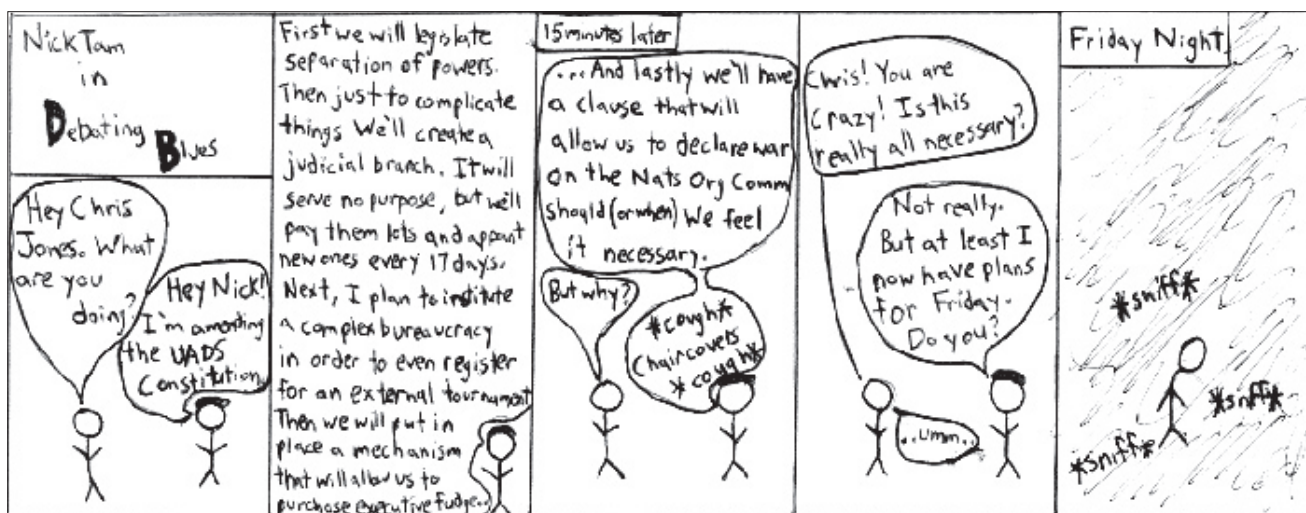 Nick Tam
in
Debating
Blues
Hey Chris
Jones. What
are you
doing?
Hey Nick!
I'm amending
the UADS
Constitution.
First we will legislate
separation of powers.
Then just to complicate
things We'll create a
judicial branch. It will
serve no purpose, but we'll
pay them lots and appoint
new ones every 17 days.
Next, I plan to institute
a complex bureaucracy
in order to even register
for an external tournament
Then we will put in
place a mechanism
that will allow us to
purchase executive fudge..
15 minutes later
...And lastly we'll have
a clause that will
allow us to declare war
on the Nats Org Comm
should (or when) We feel
it necessary.
But why?
*cough*
Chaircovers
*cough*
Chris! You are
Crazy! Is this
really all necessary?
Not really.
But at least I
now have plans
for Friday.
Do you?
..umm..
Friday Night
*sniff*
*sniff*
*sniff*